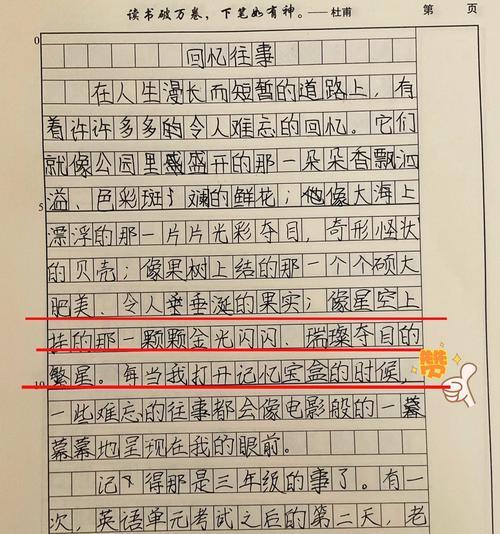 读书破万卷，下笔如有神。——杜甫 第 页
0
回忆往事
在人生漫长而短暂的道路上，有
着许许多多的令人难忘的回忆。它们
就像公园里盛开的那一朵朵香飘洒
5
溢、色彩斑斓的鲜花；像大海上
漂浮的那一片片光彩夺目，奇形怪状
的贝壳；像果树上结的那一个个硕大
肥美、令人垂垂涎的果实；像星空上
挂的那一颗颗金光闪闪、璀璨夺目的
10
繁星。每当我打开记忆宝盒的时候，
一些难忘的往事都会像电影般的一幕
幕幕地呈现在我的眼前。
记得那是三年级的事了。有一
次，英语单元考试之后的第二天，老
赞赞